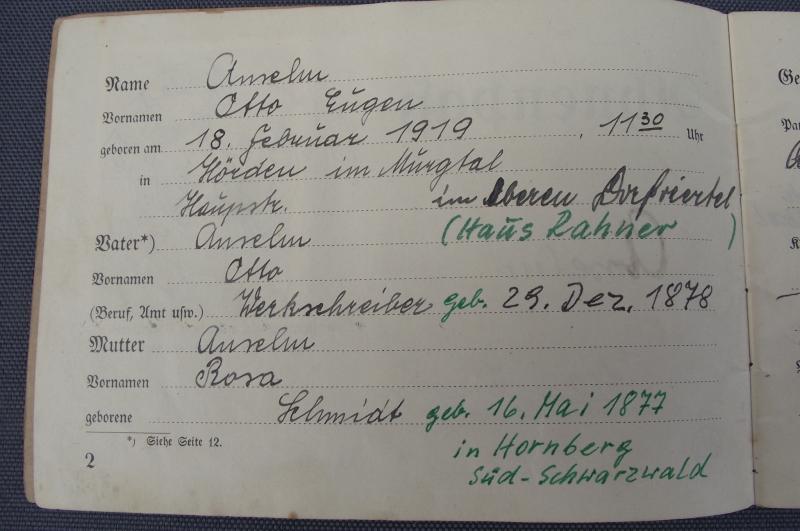 Name Anselm
Vornamen Otto Eugen
geboren am 18. Februar 1919, 11 30 Uhr
in Hörden im Murgtal
Haupstr. im Oberen Dorfviertel
Vater*) Anselm (Haus Rahner)
Vornamen Otto
(Beruf, Amt usw.) Werkschreiber geb. 29. Dez. 1878
Mutter Anselm
Vornamen Rosa
geborene Schmidt geb. 16. Mai 1877
*) Siehe Seite 12. in Hornberg
2 Süd-Schwarzwald
Ge